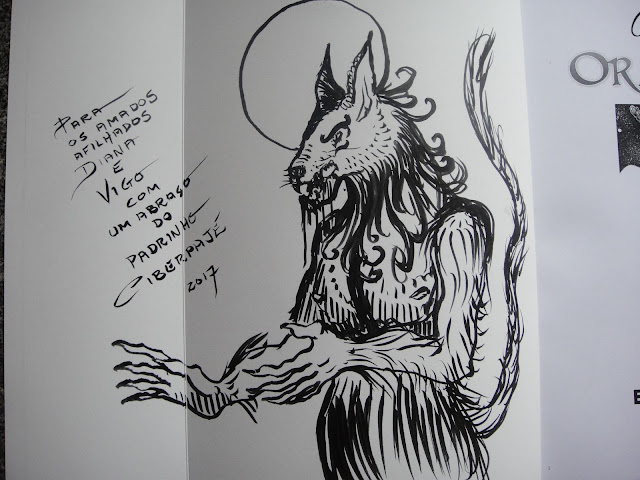 PARA
OS AMADOS
AFILHADOS
DIANA
E
VIGO
COM
UM ABRAÇO
DO
PADRINHO
CIBERPAJÉ
2017
OR
E